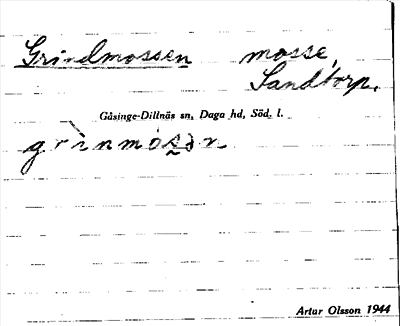 Grindmossen mosse,
Sandtorp.
Gåsinge-Dillnäs sn, Daga hd, Söd. l.
grìnmósən
Artur Olsson 1944